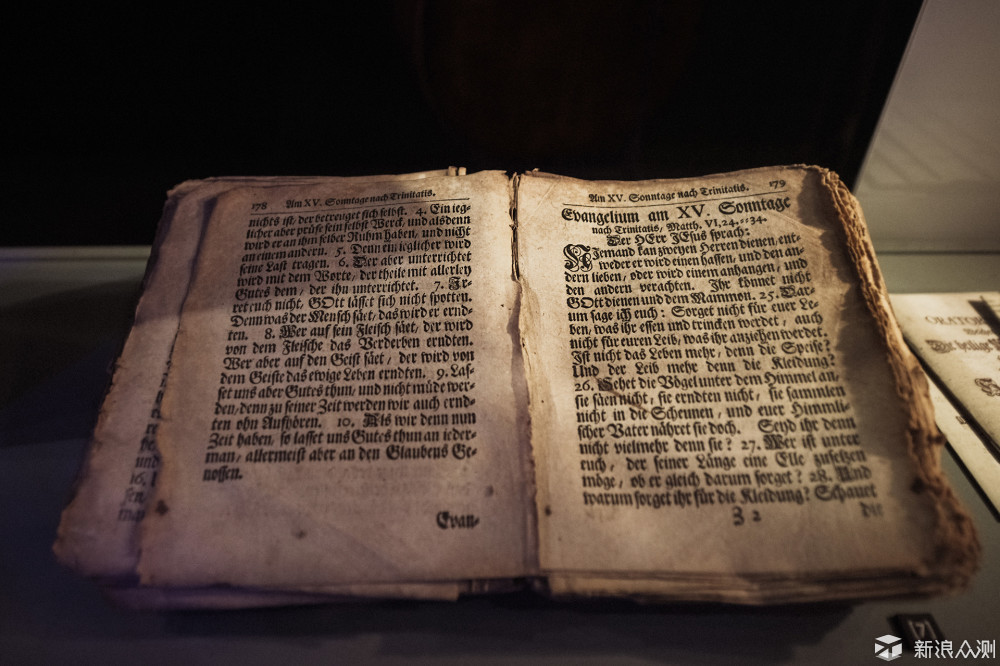 178 Am XV. Sonntage nach Trinitatis.
nichts ist, der betreuget sich selbst. 4. Ein ieg-
licher aber prüfe sein selbst Werck, und alsdenn
wird er an ihm selber Ruhm haben, und nicht
an einem andern. 5. Denn ein ieglicher wird
seine Last tragen. 6. Der aber unterrichtet
wird mit dem Worte, der theile mit allerley
Gutes dem, der ihn unterrichtet. 7. Ir-
ret euch nicht, GOtt lässet sich nicht spotten.
Denn was der Mensch säet, das wird er ernd-
ten. 8. Wer auf sein Fleisch säet, der wird
von dem Fleische das Verderben erndten.
Wer aber auf den Geist säet, der wird von
dem Geiste das ewige Leben erndten. 9. Las-
set uns aber Gutes thun, und nicht müde wer-
den, denn zu seiner Zeit werden wir auch ernd-
ten ohn Aufhören. 10. Als wir denn nun
Zeit haben, so lasset uns Gutes thun an ieder-
man, allermeist aber an den Glaubens Ge-
nossen.
Evan-
Am XV. Sonntage nach Trinitatis. 179
Evangelium am XV. Sonntage
nach Trinitatis, Matth. VI, 24.--34.
Der HErr JEsus sprach:
Niemand kan zweyen Herren dienen, ent-
weder er wird einen hassen, und den an-
dern lieben, oder wird einem anhangen, und
den andern verachten. Ihr könnet nicht
GOtt dienen und dem Mammon. 25. Dar-
um sage ich euch: Sorget nicht für euer Le-
ben, was ihr essen und trincken werdet, auch
nicht für euren Leib, was ihr anziehen werdet.
Ist nicht das Leben mehr, denn die Speise?
Und der Leib mehr denn die Kleidung?
26. Sehet die Vögel unter dem Himmel an,
sie säen nicht, sie erndten nicht, sie sammlen
nicht in die Scheunen, und euer Himmli-
scher Vater nähret sie doch. Seyd ihr denn
nicht vielmehr denn sie? 27. Wer ist unter
euch, der seiner Länge eine Elle zusetzen
möge, ob er gleich darum sorget? 28. Und
warum sorget ihr für die Kleidung? Schauet
Z 2 die
ORATOR
[7]
新浪众测